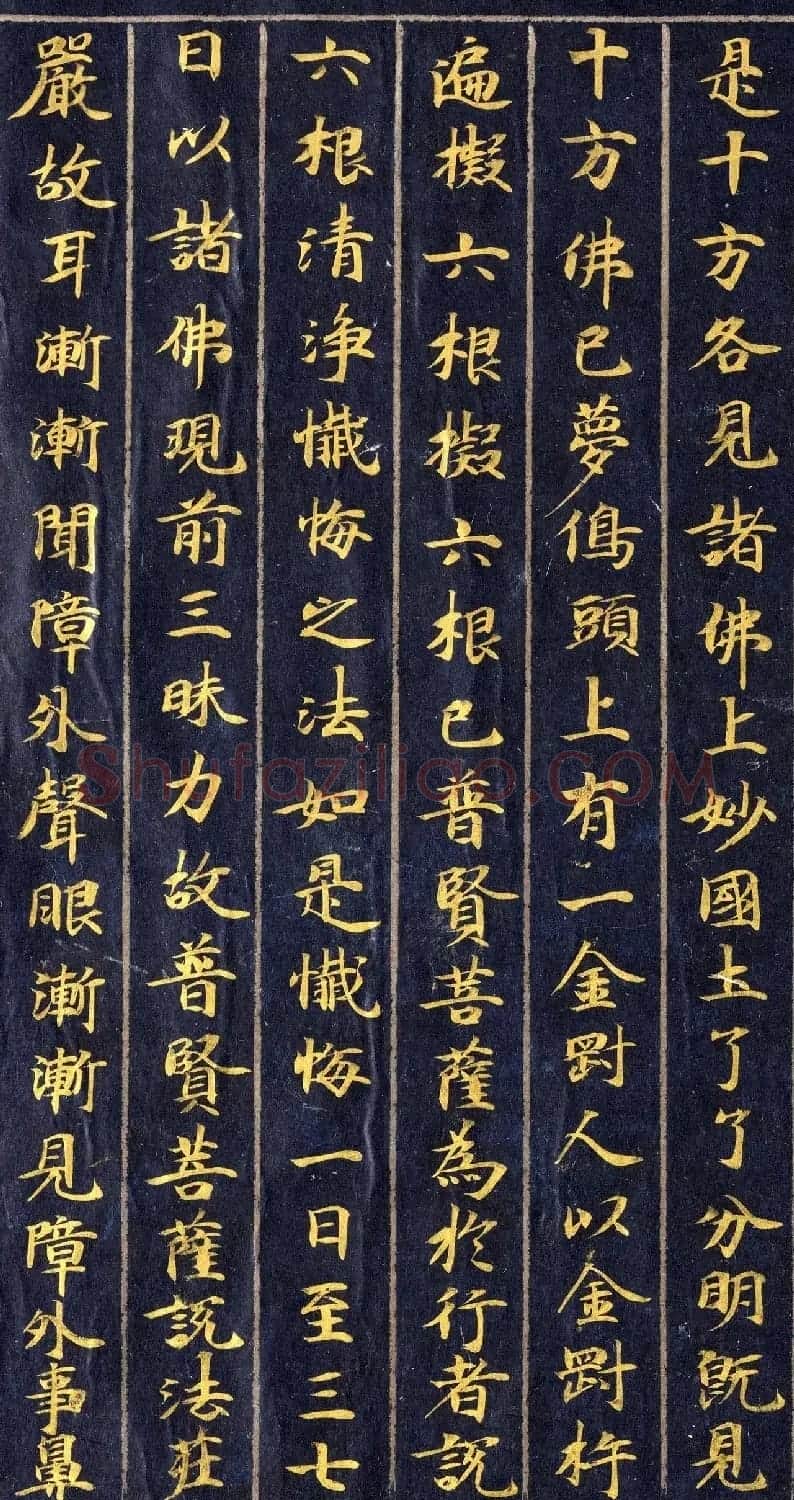 是十方各見諸佛上妙國土了了分明既見
十方佛已夢鳥頭上有一金剛人以金剛杵
遍擬六根擬六根已普賢菩薩為於行者說
六根清淨懺悔之法如是懺悔一日至三七
日以諸佛現前三昧力故普賢菩薩說法莊
嚴故耳漸漸聞障外聲眼漸漸見障外事鼻
Shufaziliao.COM